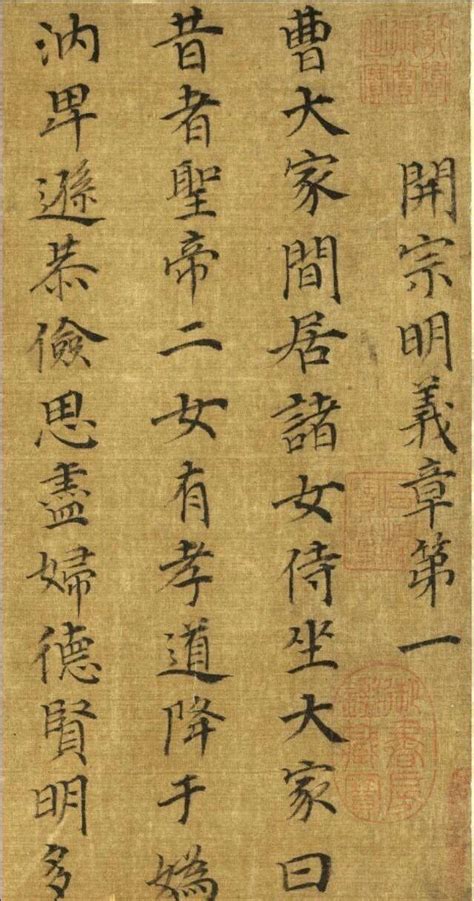 開宗明義章第一
曹大家間居諸女侍坐大家曰
昔者聖帝二女有孝道降于嬀
汭卑遜恭儉思盡婦德賢明多